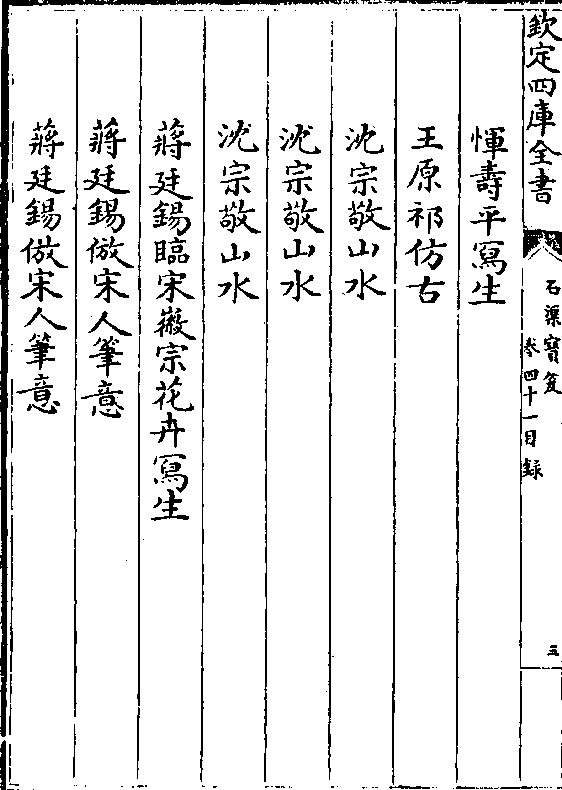 欽定四庫全書
石渠寶笈
卷四十一目録
五
惲壽平寫生
王原祁仿古
沈宗敬山水
沈宗敬山水
沈宗敬山水
蔣廷錫臨宋徽宗花卉寫生
蔣廷錫倣宋人筆意
蔣廷錫倣宋人筆意